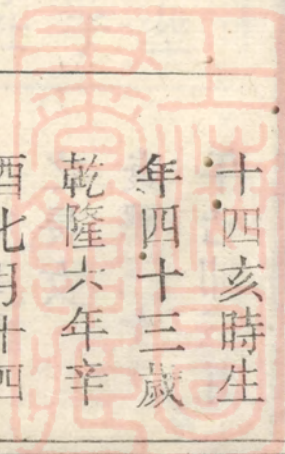 十四亥時生
年四十三歲
乾隆六年辛
酉七月十四